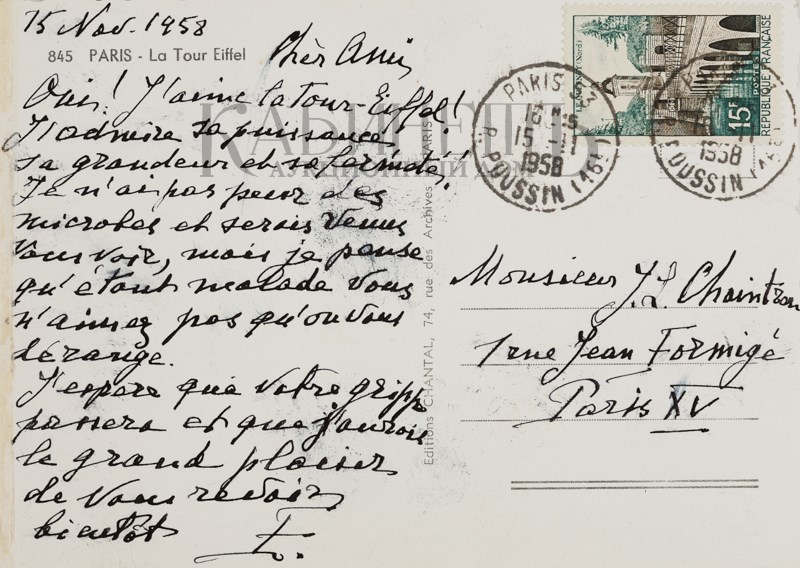 15 Nov. 1958
845 PARIS - La Tour Eiffel
Chèr Ami
Oui! J'aime la Tour-Eiffel!
J'admire sa puissance,
sa grandeur et sa fermeté!
Je n'ai pas peur des
microbes et serais venue
vous voir, mais je pense
qu'étant malade vous
n'aimez pas qu'on vous
dérange.
J'espere que votre grippe
passera et que j'aurais
le grand plaisir
de vous revoir
bientôt
Editions CHANTAL, 74, rue des Archives PARIS
КАБИНЕТЪ
АУКЦИОННЫЙ ДОМ
PARIS
15 - 11
1958
R. POUSSIN (16E)
1958
POUSSIN (16E)
15F
POSTES
REPUBLIQUE FRANÇAISE
Monsieur J.L. Chaintron
1 rue Jean Formigé
Paris XV